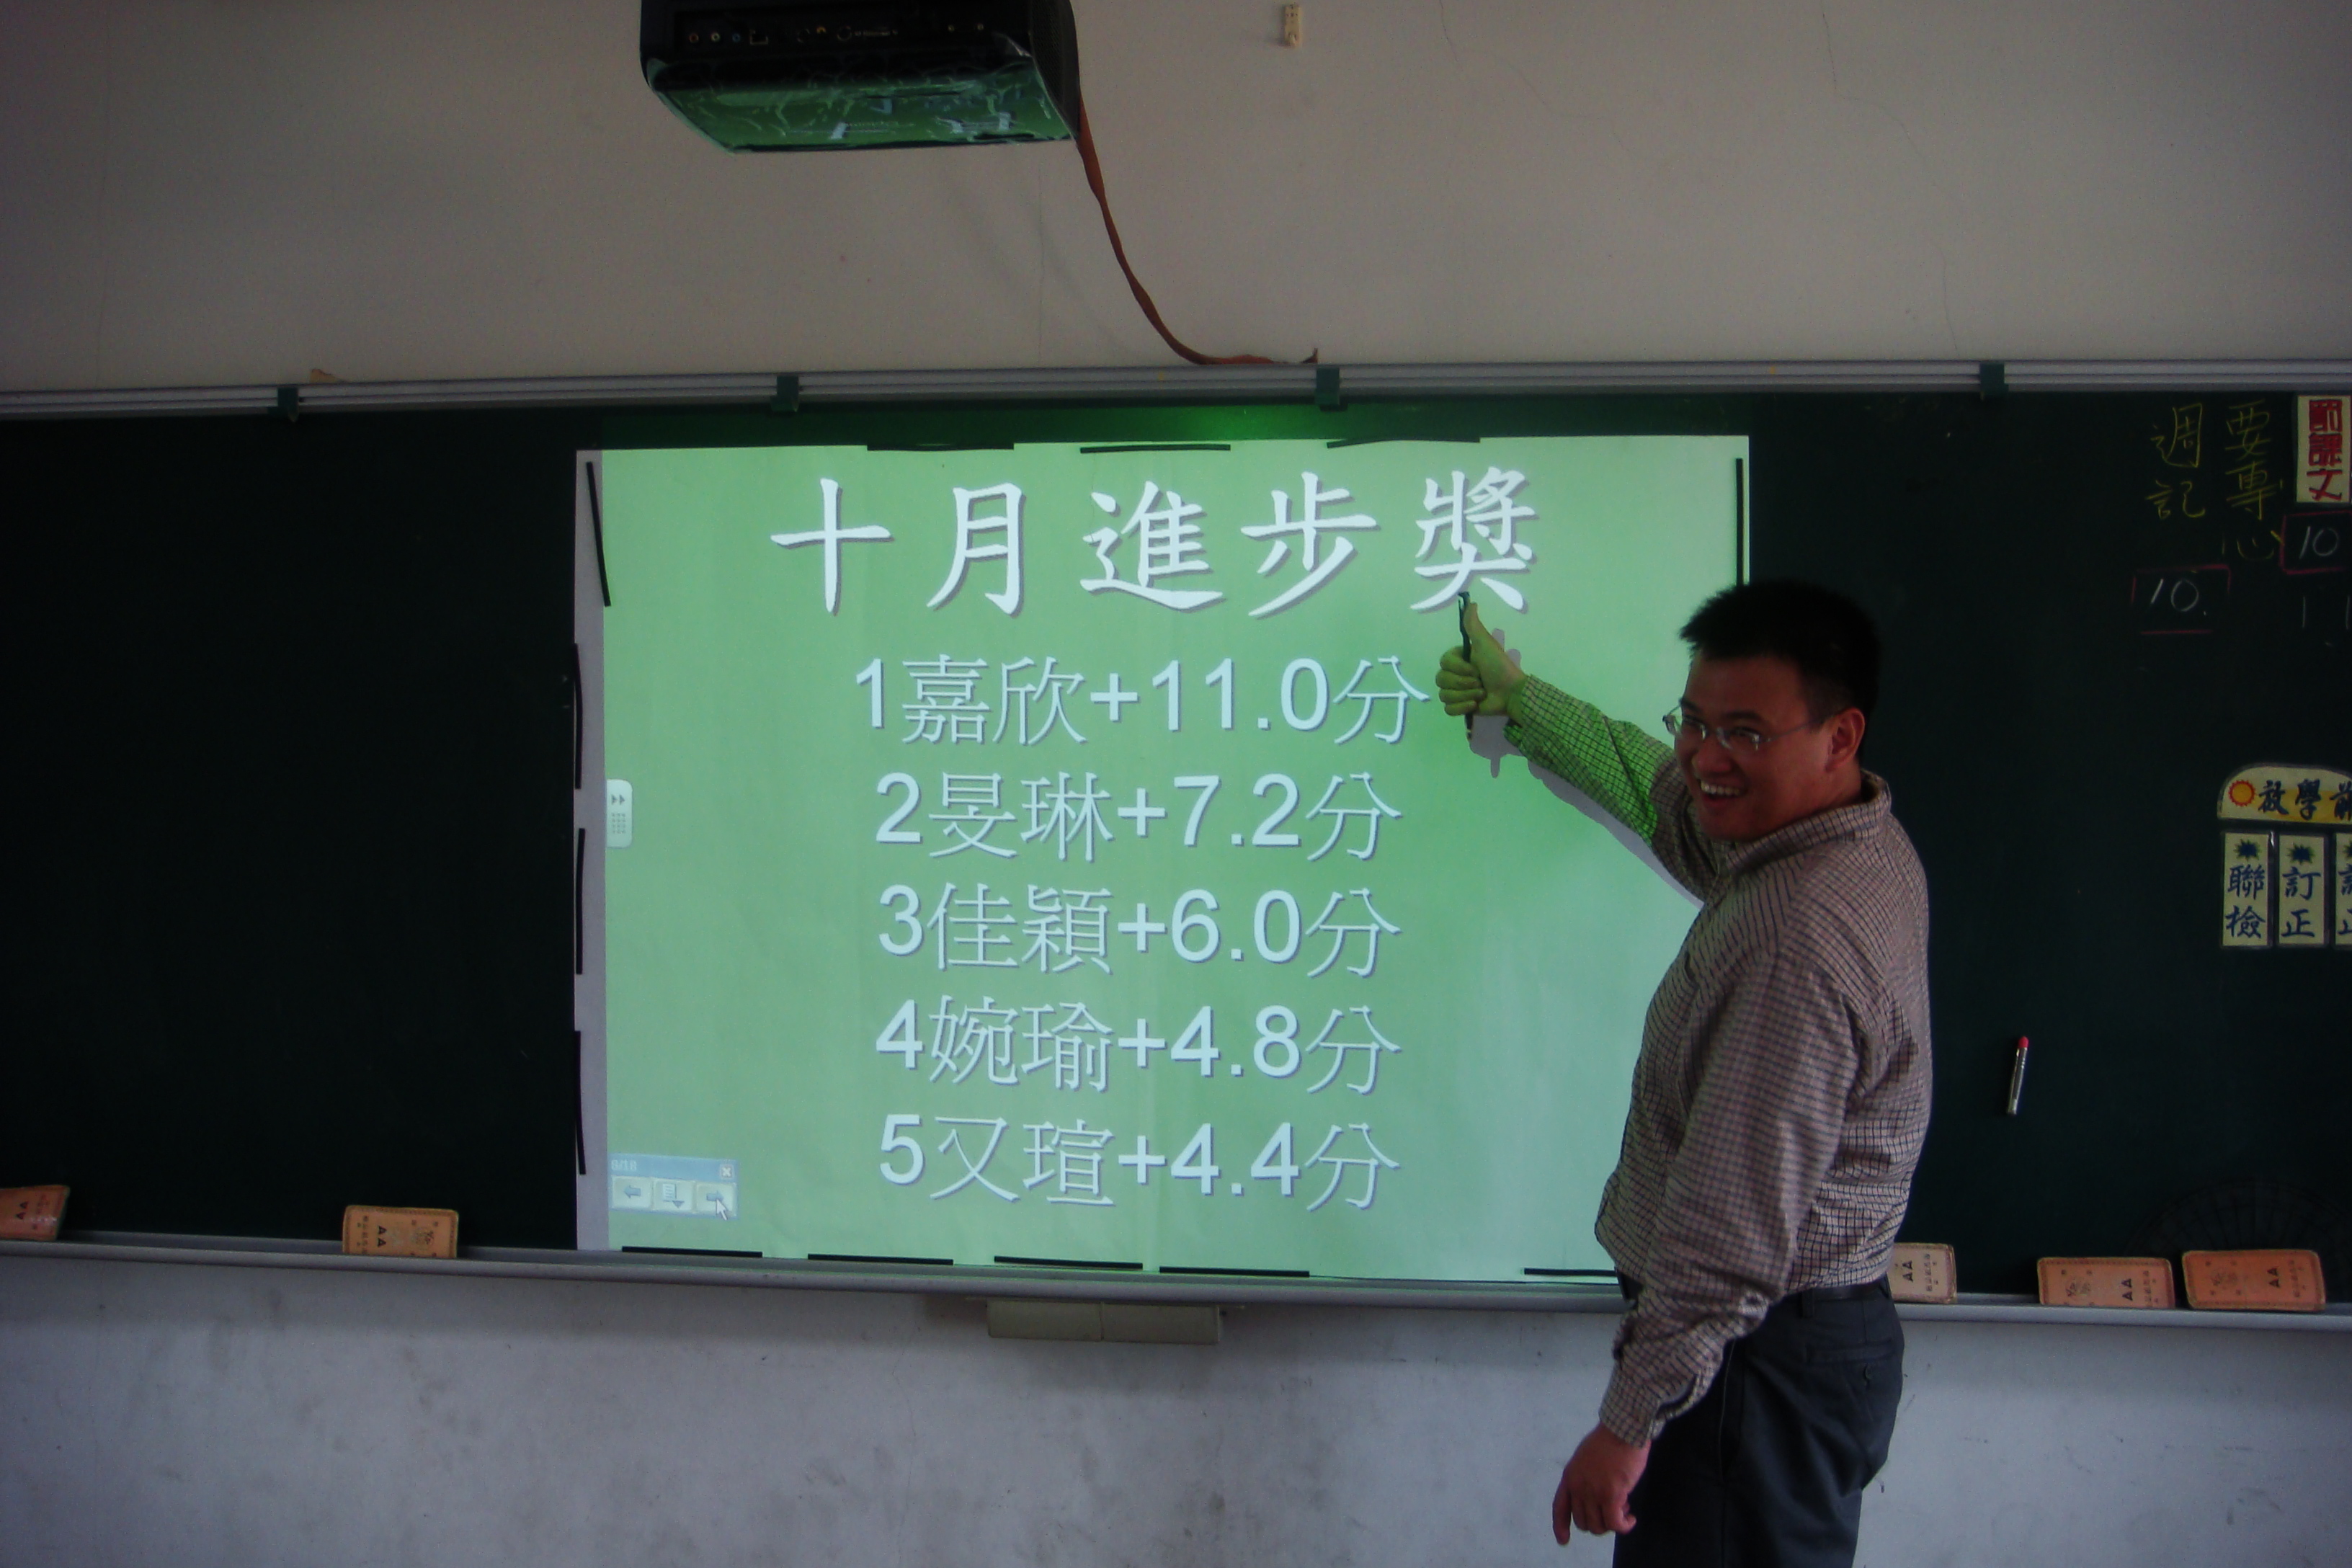 十月進步獎
1嘉欣+11.0分
2旻琳+7.2分
3佳穎+6.0分
4婉瑜+4.8分
5又瑄+4.4分
8/18
週記
要專心
10.
10
聯檢
訂正